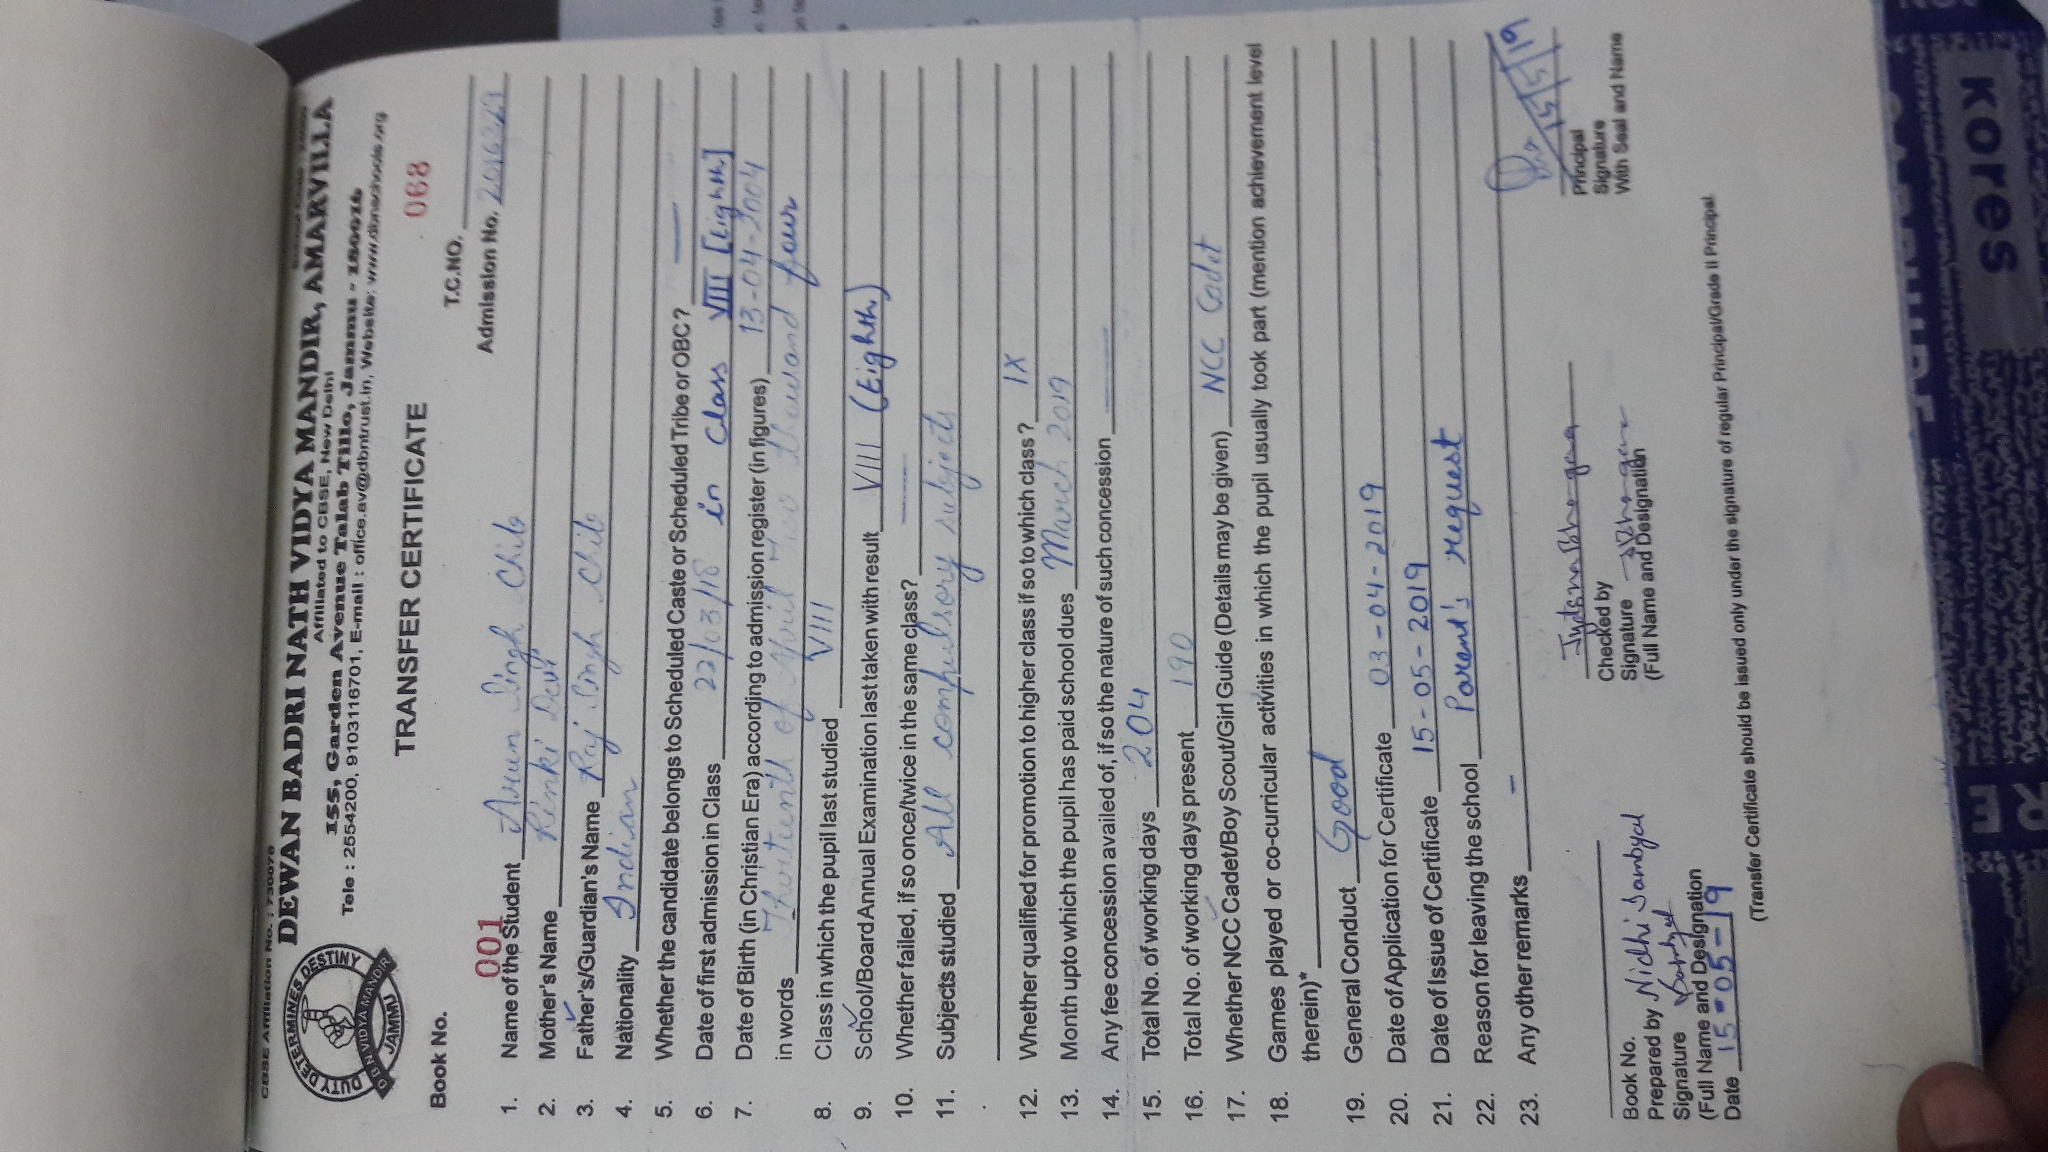 CBSE Affiliation No. : 730078
DEWAN BADRI NATH VIDYA MANDIR, AMARVILLA
Affiliated to CBSE, New Delhi
155, Garden Avenue Talab Tillo, Jammu - 180016
Tele : 2554200, 9103116701, E-mail : office.av@dbntrust.in, Website: www.dbnschools.org
DUTY DETERMINES DESTINY
D B N VIDYA MANDIR
JAMMU
TRANSFER CERTIFICATE
068
Book No. T.C.NO.
001 Admission No.
1. Name of the Student Arun Singh Chib
2. Mother's Name Pinki Devi
3. Father's/Guardian's Name Raj Singh Chib
4. Nationality Indian
5. Whether the candidate belongs to Scheduled Caste or Scheduled Tribe or OBC? —
6. Date of first admission in Class 22/03/18 in Class VIII [Eighth]
7. Date of Birth (in Christian Era) according to admission register (in figures) 13-04-2004
in words Thirteenth of April Two thousand four
8. Class in which the pupil last studied VIII
9. School/Board Annual Examination last taken with result VIII (Eighth)
10. Whether failed, if so once/twice in the same class? —
11. Subjects studied All compulsory subjects
12. Whether qualified for promotion to higher class if so to which class? IX
13. Month upto which the pupil has paid school dues March 2019
14. Any fee concession availed of, if so the nature of such concession —
15. Total No. of working days 204
16. Total No. of working days present 190
17. Whether NCC Cadet/Boy Scout/Girl Guide (Details may be given) NCC Cadet
18. Games played or co-curricular activities in which the pupil usually took part (mention achievement level
therein)*
19. General Conduct Good
20. Date of Application for Certificate 03-04-2019
21. Date of Issue of Certificate 15-05-2019
22. Reason for leaving the school Parent's request
23. Any other remarks -
Book No.
Prepared by Nidhi Sambyal
Signature
(Full Name and Designation
Date 15-05-19
Jyotsna
Checked by
Signature
(Full Name and Designation
15/5/19
Principal
Signature
With Seal and Name
(Transfer Certificate should be issued only under the signature of regular Principal/Grade II Principal
Kores